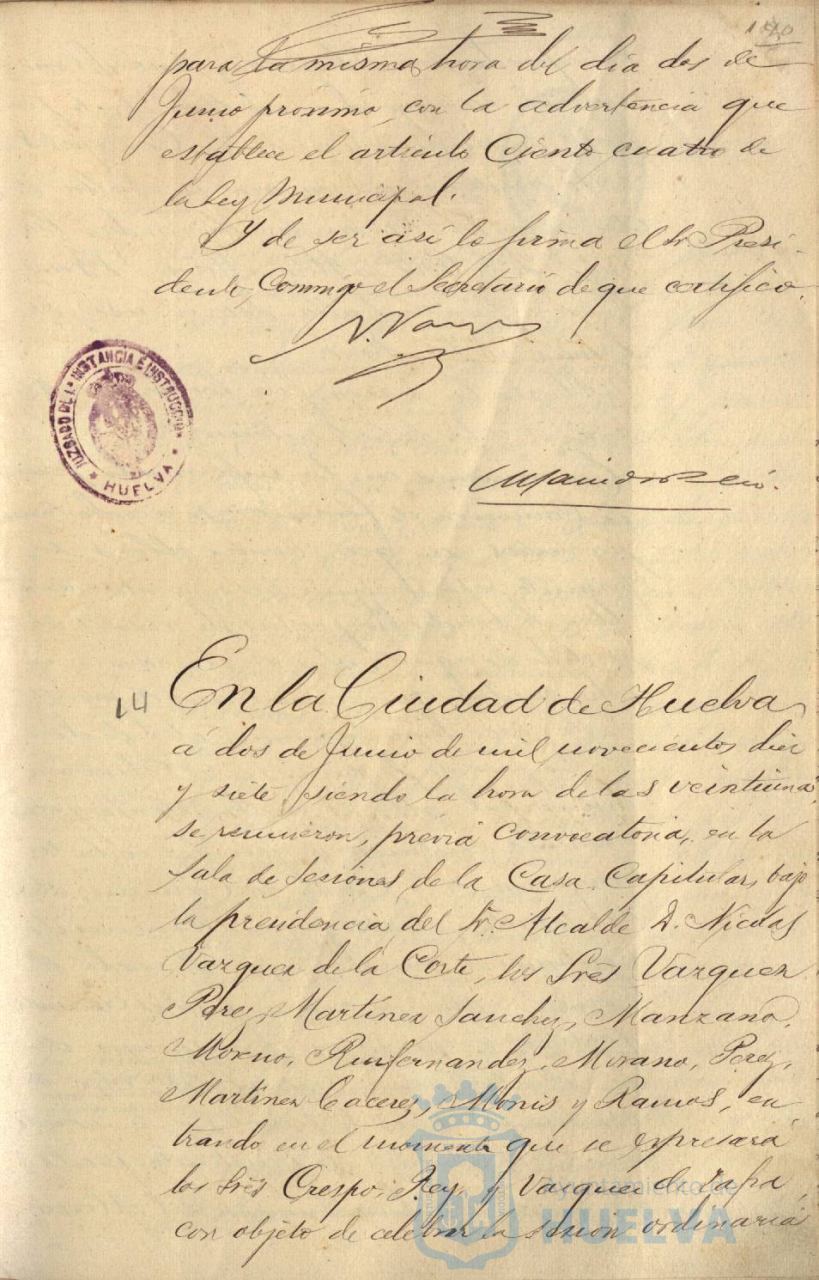 140
para la misma hora del dia dos de
Junio próximo, con la advertencia que
establece el artículo Ciento cuatro de
la Ley Municipal.
Y de ser así lo firma el Sr. Presi-
dente, Conmigo el Secretario de que certifico.
N. Vazquez
JUZGADO DE 1ª INSTANCIA E INSTRUCCION
* HUELVA *
14 En la Ciudad de Huelva
á dos de Junio de mil novecientos diez
y siete, siendo la hora de las veintiuna
se reunieron, previa convocatoria, en la
sala de sesiones de la Casa Capitular, bajo
la presidencia del Sr. Alcalde D. Nicolas
Vazquez de la Corte, los Srés Vazquez
Perez, Martinez Sanchez, Manzano,
Moreno, Ruifernandez, Morano, Perez,
Martinez Caceres, Monis y Ramos, en
trando en el momento que se expresará
los Srés Crespo, Rey y Vazquez de Zafra,
con objeto de celebrar la sesion ordinaria
Ayuntamiento de
HUELVA